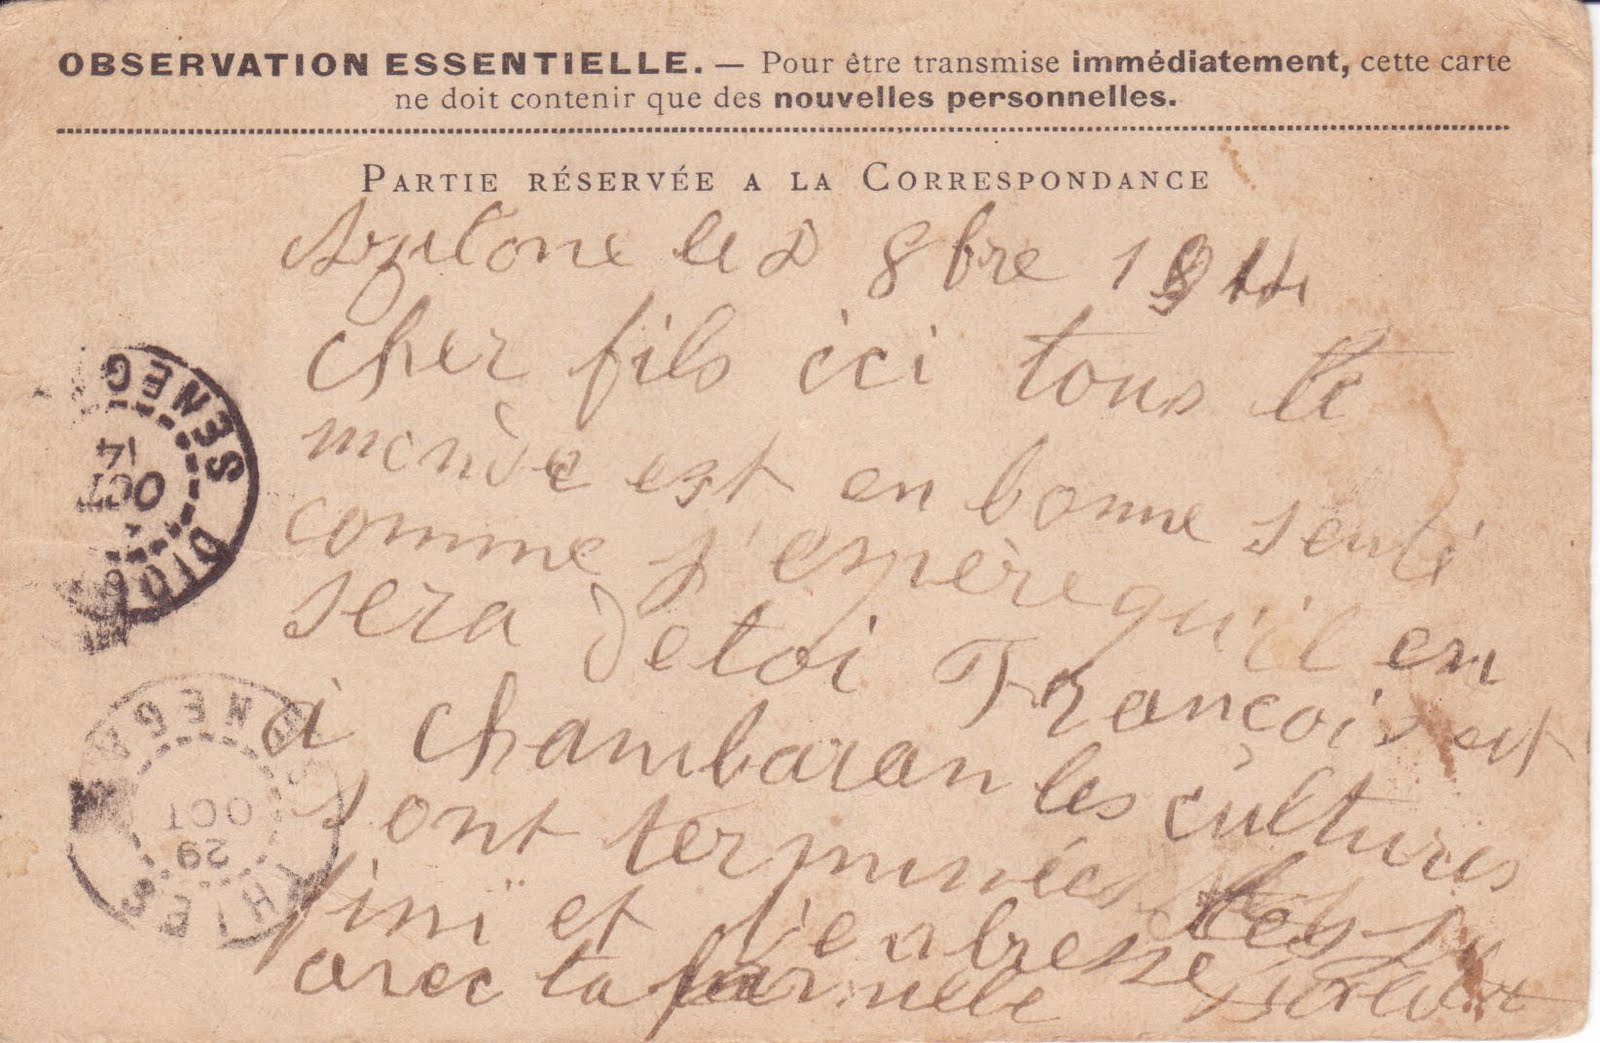 OBSERVATION ESSENTIELLE. — Pour être transmise immédiatement, cette carte
ne doit contenir que des nouvelles personnelles.
PARTIE RÉSERVÉE A LA CORRESPONDANCE
le 2 8bre 1914
cher fils ici tous le
monde est en bonne senté
comme j'espère qu'il en
sera de toi François est
à chambaran les cultures
sont terminées
fini et j'enbresse
avec ta famille
SENEG
14
OCT
SENEGAL
OCT
29
THIES